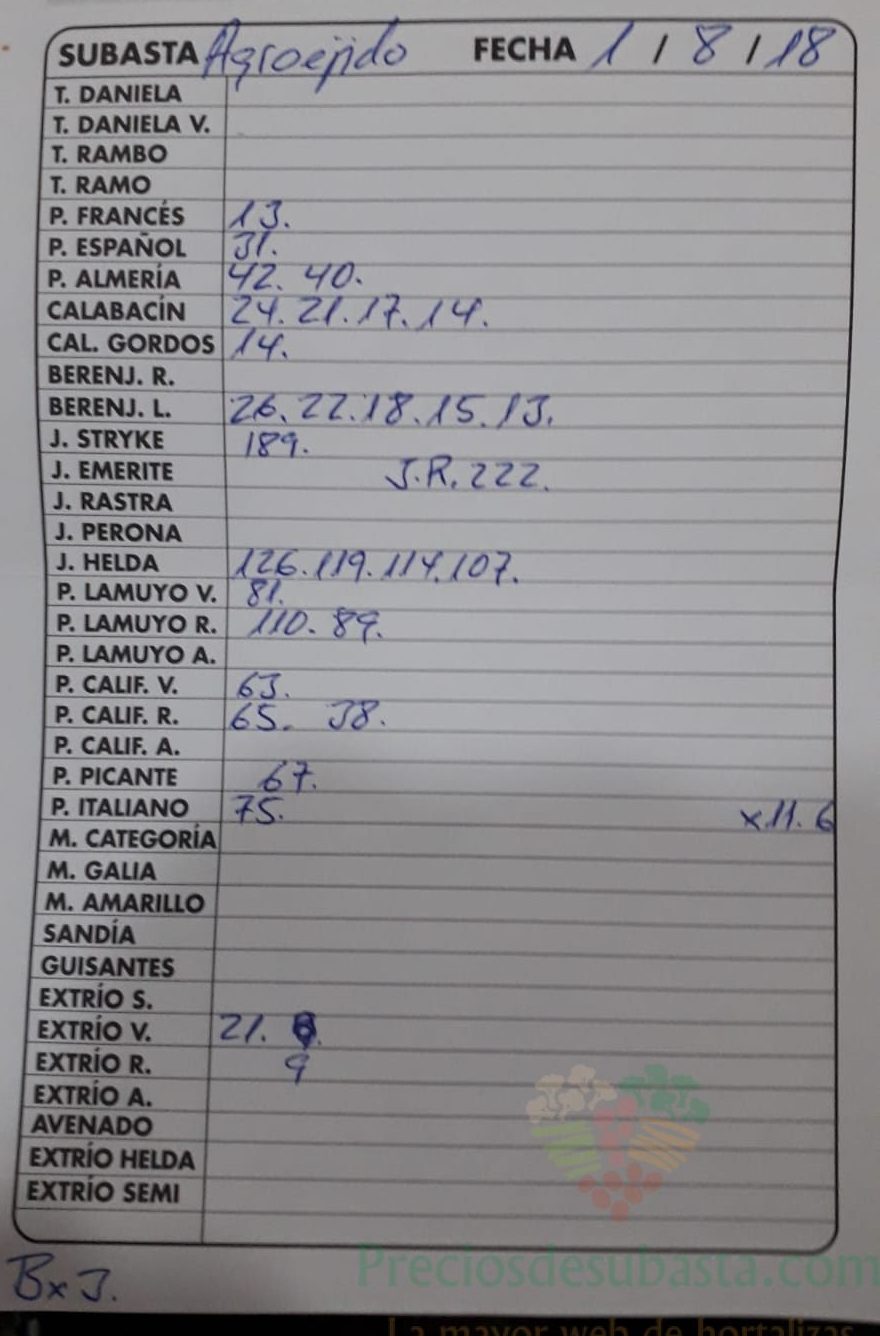 SUBASTA Agroejido FECHA 1 / 8 / 18
T. DANIELA
T. DANIELA V.
T. RAMBO
T. RAMO
P. FRANCÉS 13.
P. ESPAÑOL 31.
P. ALMERÍA 42. 40.
CALABACÍN 24. 21. 17. 14.
CAL. GORDOS 14.
BERENJ. R.
BERENJ. L. 26. 22. 18. 15. 13.
J. STRYKE 189.
J. EMERITE J.R. 222.
J. RASTRA
J. PERONA
J. HELDA 126. 119. 114. 107.
P. LAMUYO V. 81.
P. LAMUYO R. 110. 89.
P. LAMUYO A.
P. CALIF. V. 63.
P. CALIF. R. 65. 38.
P. CALIF. A.
P. PICANTE 67.
P. ITALIANO 75. x 11. 6
M. CATEGORÍA
M. GALIA
M. AMARILLO
SANDÍA
GUISANTES
EXTRÍO S.
EXTRÍO V. 21.
EXTRÍO R. 9
EXTRÍO A.
AVENADO
EXTRÍO HELDA
EXTRÍO SEMI
Preciosdesubasta.com
B x 3.
La mayor web de hortalizas